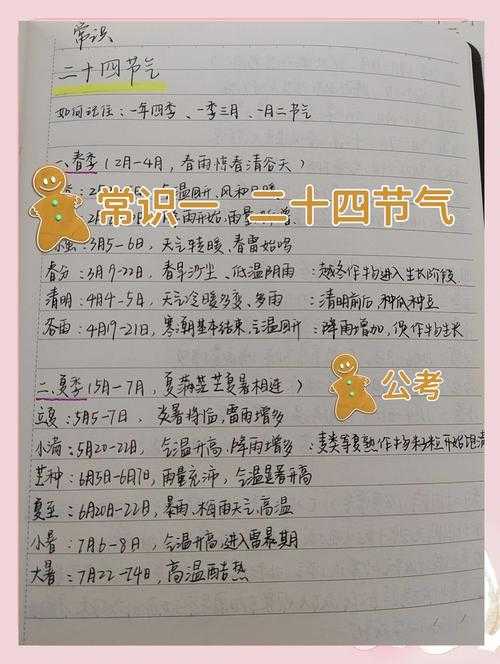 常识
二十四节气
如何记住：一年四季、一季三月、一月二节气
一、春季（2月-4月，春雨惊春清谷天）
气温回升、风和日暖
常识一 二十四节气
雨开始，雨量
3月5-6日，天气转暖、春雷始鸣
春分：3月 -22日，沙尘、低温阴雨：越冬作物进入生长阶段
清明：4月4-5日，天气冷暖多变、多雨：清明前后，种瓜种豆
谷雨：4月19-21日，寒潮基本结束，气温回升：降雨增加，作物生长
公考
二、夏季（5月-7月，夏满芒夏暑相连）
立夏：5月5-7日，炎暑将临，雷雨增多
小满：5月20-22日，气温升高，降雨增多：麦类等夏熟作物籽粒开始饱满
芒种：6月5日-6月7日，雨量充沛，气温显著升高
夏至：6月20日-22日，暴雨、梅雨天气，高温
小暑：7月6-8日，气温升高，进入雷暴期
大暑：7月22-24日，高温酷热